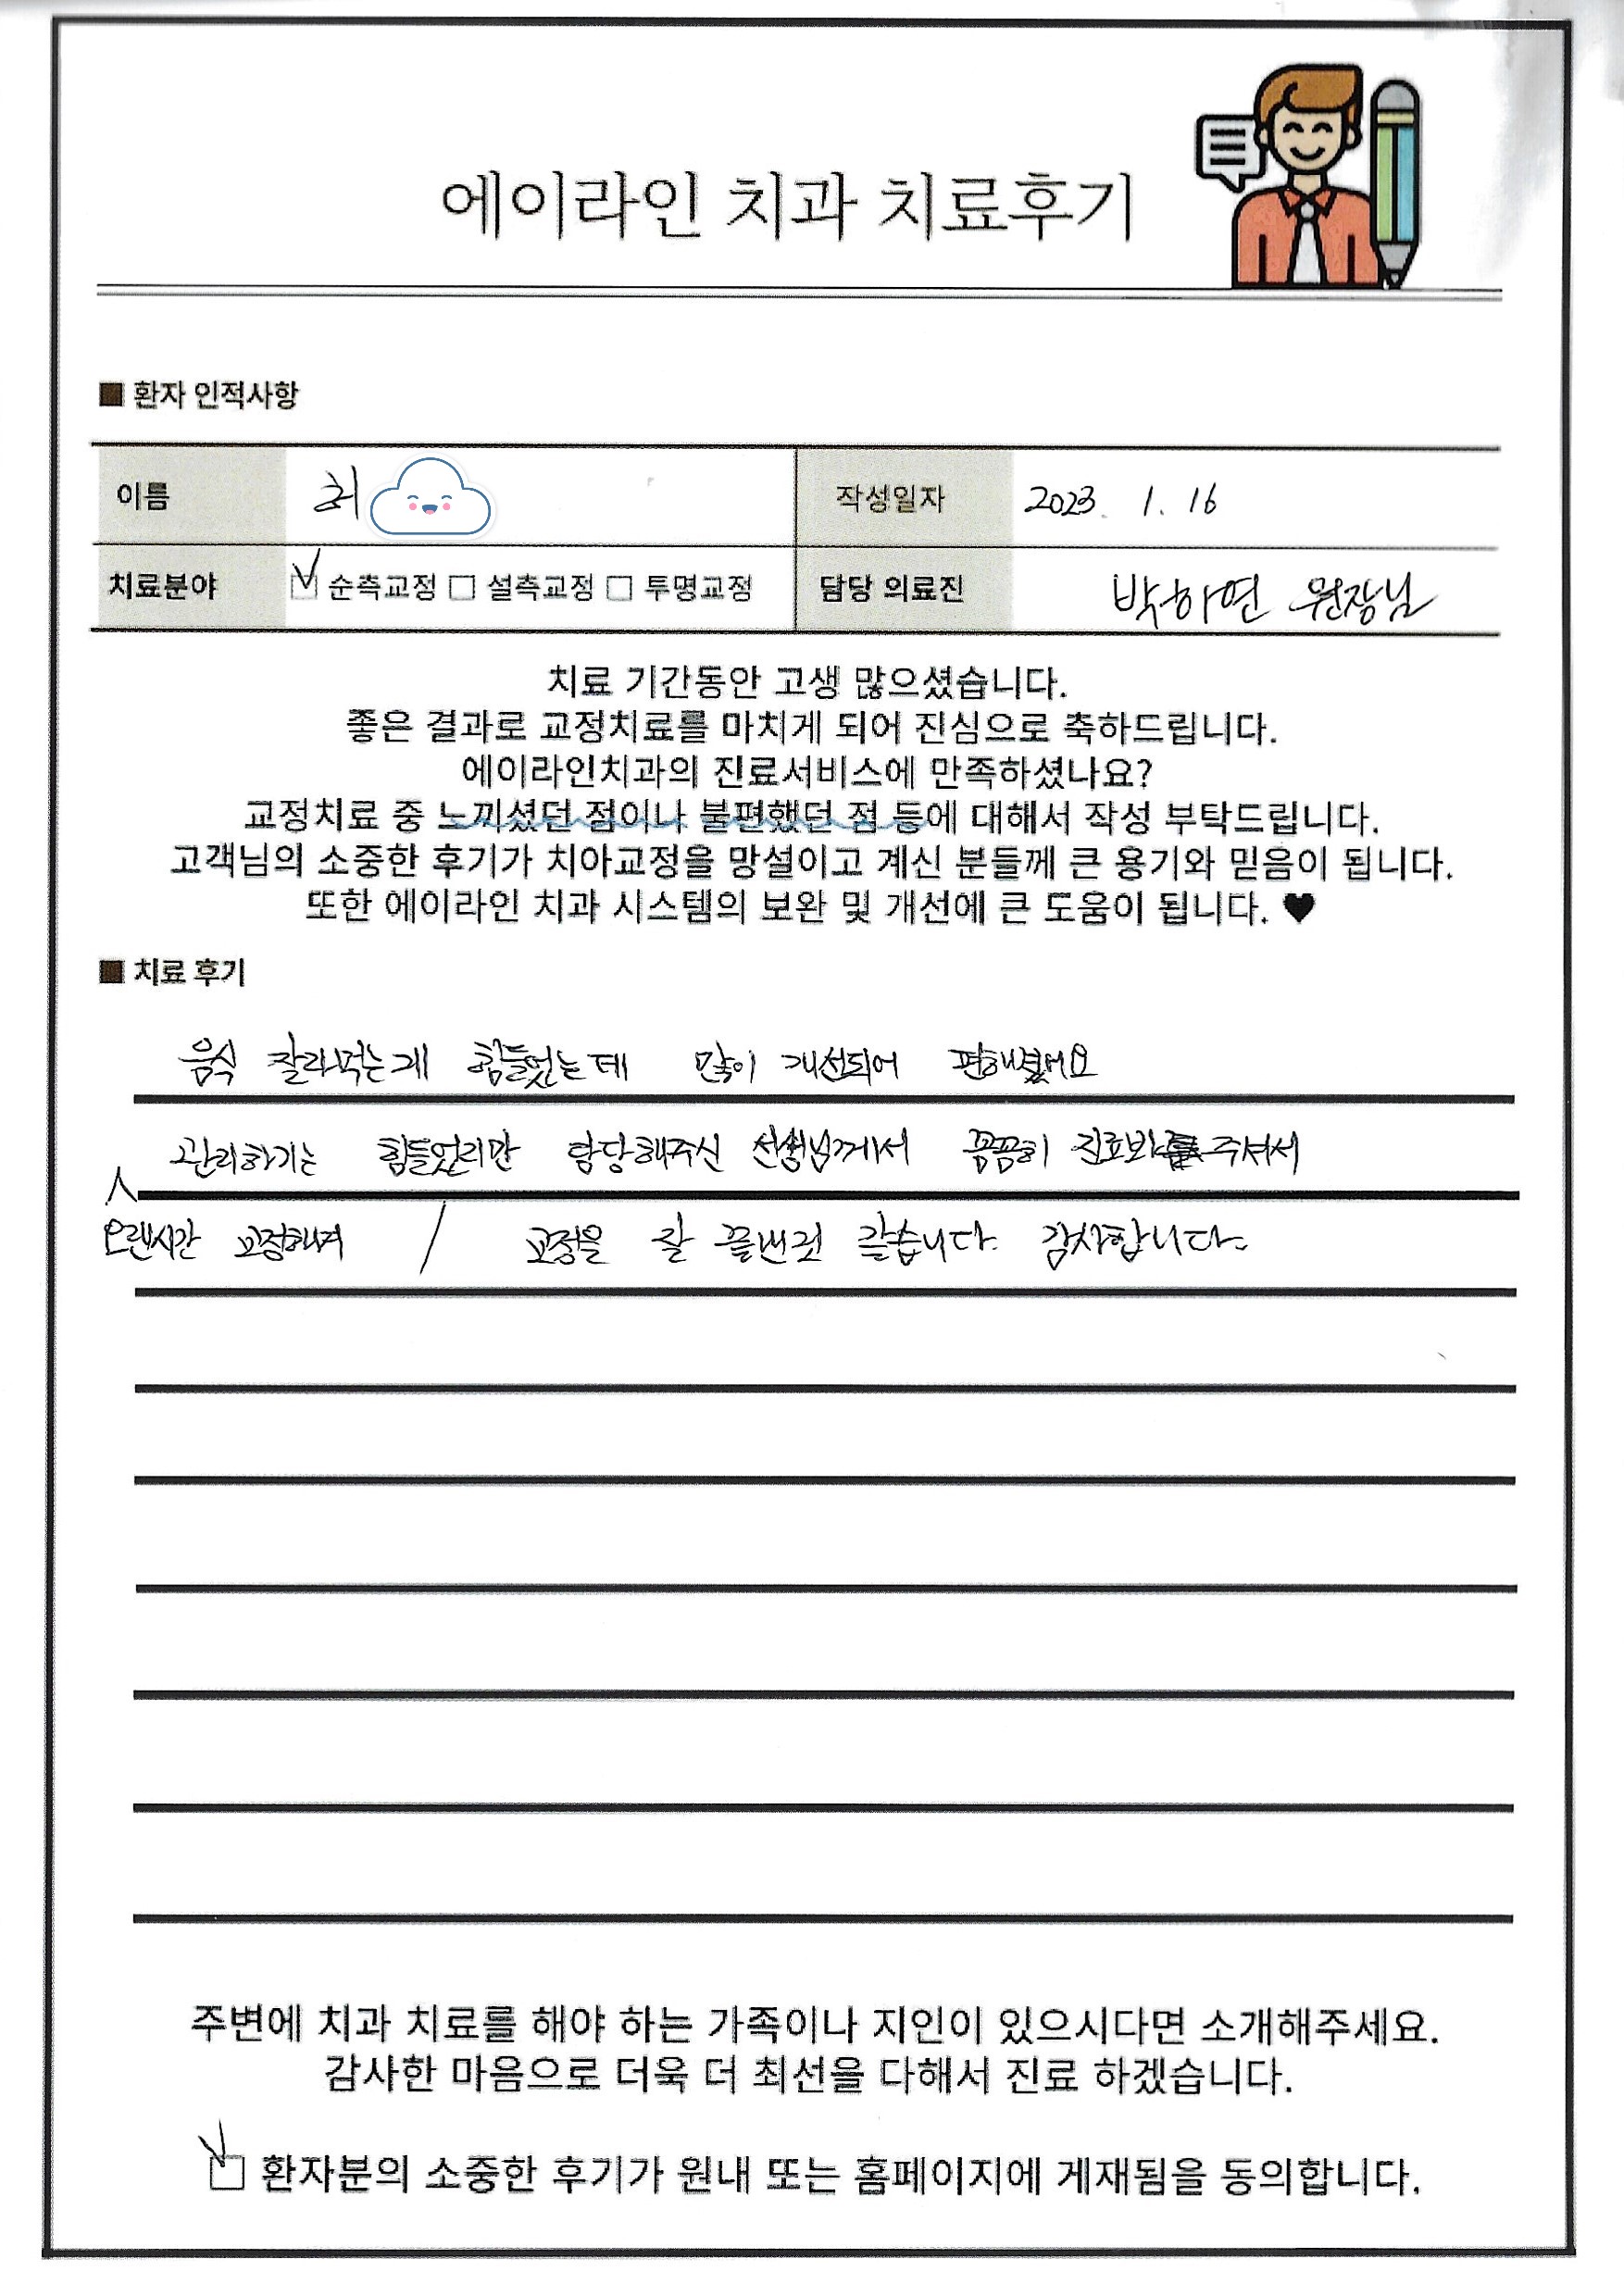 에이라인 치과 치료후기
■ 환자 인적사항
이름 허 작성일자 2023. 1. 16
치료분야 ☑ 순측교정 □ 설측교정 □ 투명교정 담당 의료진 박하연 원장님
치료 기간동안 고생 많으셨습니다.
좋은 결과로 교정치료를 마치게 되어 진심으로 축하드립니다.
에이라인치과의 진료서비스에 만족하셨나요?
교정치료 중 느끼셨던 점이나 불편했던 점 등에 대해서 작성 부탁드립니다.
고객님의 소중한 후기가 치아교정을 망설이고 계신 분들께 큰 용기와 믿음이 됩니다.
또한 에이라인 치과 시스템의 보완 및 개선에 큰 도움이 됩니다. ♥
■ 치료 후기
음식 잘라먹는게 힘들었는데 많이 개선되어 편해졌어요
관리하기는 힘들었지만 담당해주신 선생님께서 꼼꼼히 진료봐주셔서
오랜시간 교정하며 / 교정을 잘 끝낸것 같습니다. 감사합니다.
주변에 치과 치료를 해야 하는 가족이나 지인이 있으시다면 소개해주세요.
감사한 마음으로 더욱 더 최선을 다해서 진료 하겠습니다.
☑ 환자분의 소중한 후기가 원내 또는 홈페이지에 게재됨을 동의합니다.